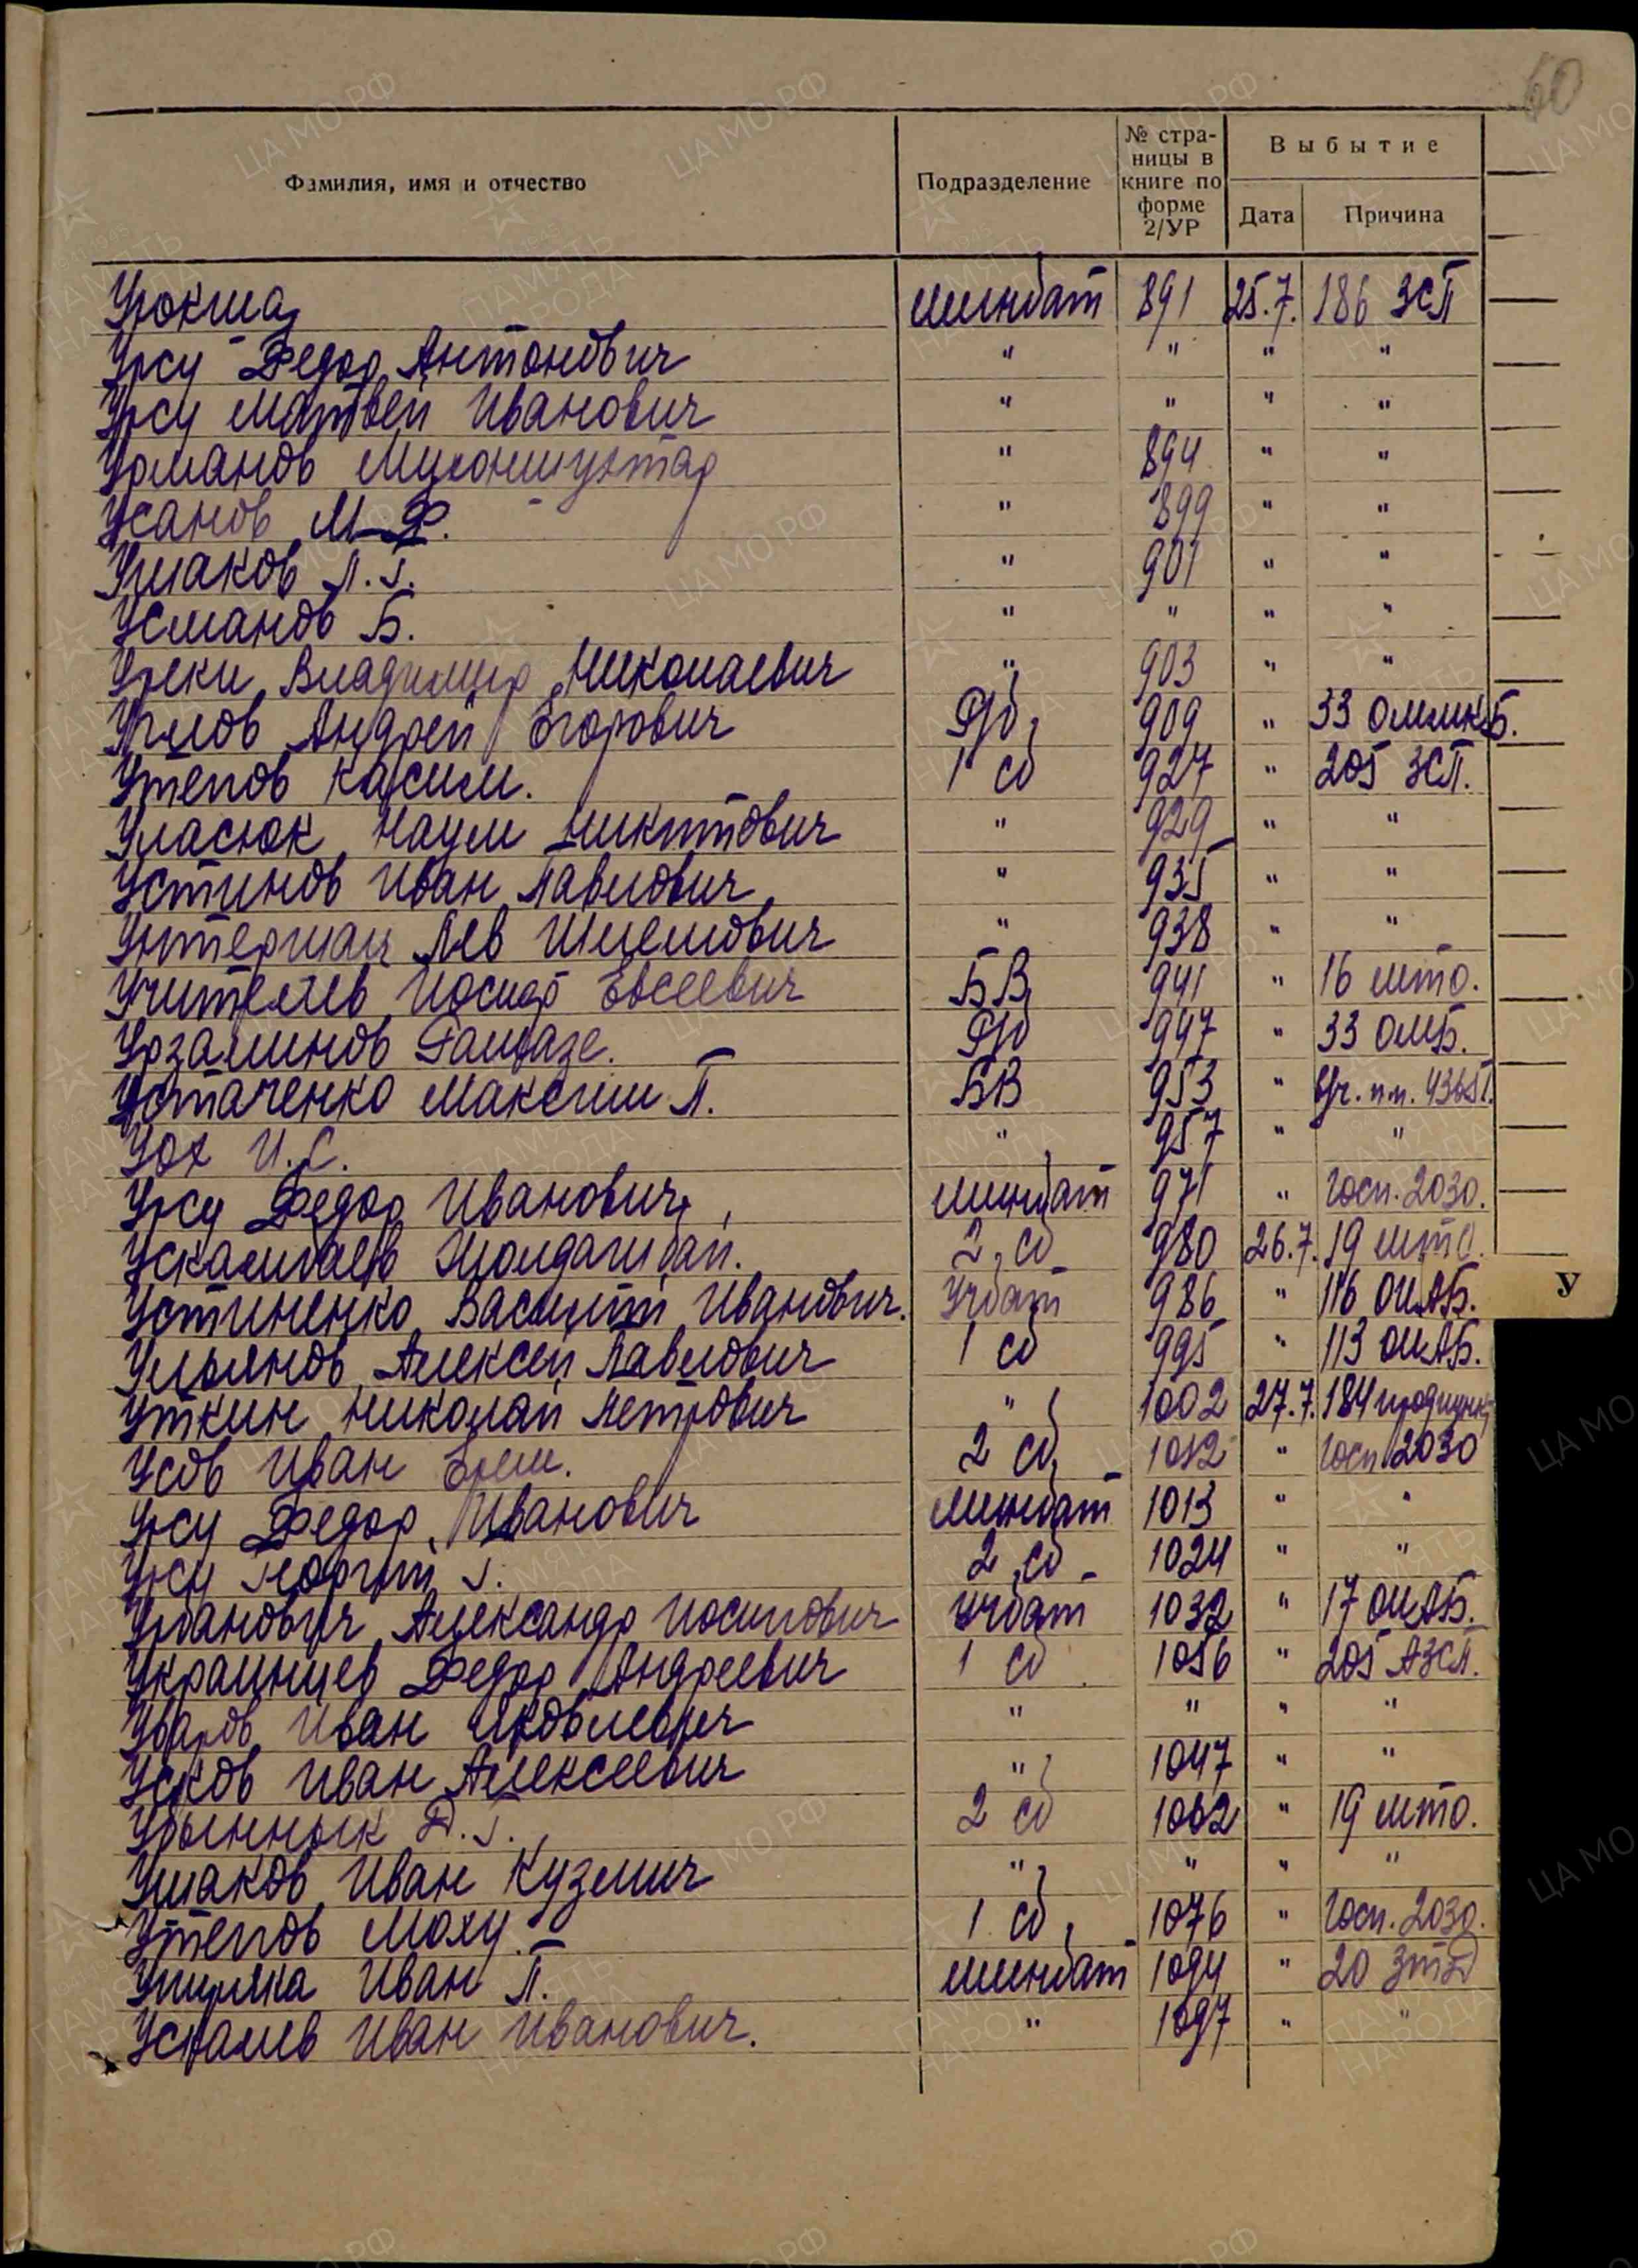 60
Фамилия, имя и отчество Подразделение № стра-ницы в книге по форме 2/УР Выбытие Дата Причина
минбат 891 25.7. 186 ЗСП
Урсу Федор Антонович " " " "
Урсу Матвей Иванович " " " "
Урманов " 894 " "
Усанов М.Ф. " 899 " "
Ушаков П.Г. " 901 " "
Усманов Б. " " " "
Уреки Владимир Николаевич " 903 " "
Андрей Егорович 909 " 33
Утепов Касим. 1 сб 927 " 205 ЗСП.
Уласюк Наум Никитович " 929 " "
Устинов Иван Павлович " 935 " "
Унтерман Лев " 938 " "
Учителев Иосиф Евсеевич БВ 941 " 16 мто.
Урзаминов 947 " 33 ОМБ.
Устаченко Максим П. БВ 953 "
И.С. " 957 " "
Урсу Федор Иванович минбат 971 " Госп. 2030.
2 сб 980 26.7. 19 мто.
Устименко Василий Иванович. Учбат 986 " 116 ОШАБ.
Ульянов Алексей Павлович 1 сб 995 " 113 ОШАБ.
Уткин Николай Петрович " 1002 27.7. 184
Усов Иван Ерем. 2 сб 1012 " Госп 2030
Урсу Федор Иванович минбат 1013 " "
Урсу Георгий Г. 2 сб 1024 " "
Урбанович Александр Иосипович Учбат 1032 " 17 ОШАБ.
Украинцев Федор Андреевич 1 сб 1036 " 205 АЗСП.
Уваров Иван Яковлевич " " " "
Усков Иван Алексеевич " 1047 " "
Д.Г. 2 сб 1062 " 19 мто.
Ушаков Иван Кузмич " " " "
Утепов Моху. 1 сб 1076 " Госп. 2030.
Иван П. минбат 1094 " 20
Иван Иванович. " 1097 " "
У